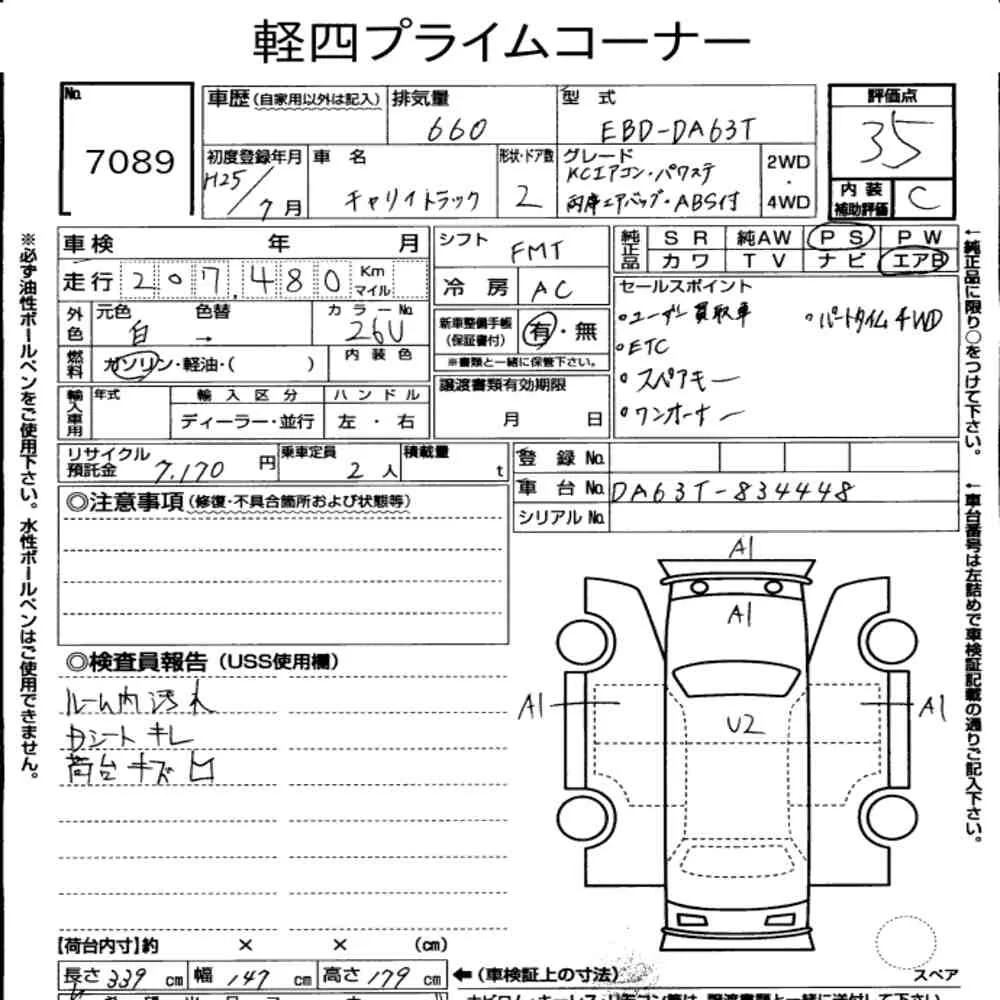 軽四プライムコーナー
No. 7089
車歴（自家用以外は記入） 排気量 660
型 式 EBD-DA63T
評価点 35
初度登録年月 H25/7月
車 名 キャリイトラック
形状・ドア数 2
グレード KCエアコン・パワステ
両席エアバッグ・ABS付
2WD・4WD
内装補助評価 C
車検 年 月
走行 207,480 Km マイル
外色 元色 白 色替 → カラーNo. 26U
燃料 ガソリン・軽油・( ) 内装色
輸入車用 年式 輸入区分 ハンドル
ディーラー・並行 左・右
シフト FMT
冷房 AC
新車整備手帳（保証書付） 有・無
※書類と一緒に保管下さい。
譲渡書類有効期限
月 日
純正品 SR 純AW PS PW
カワ TV ナビ エアB
セールスポイント
・ユーザー買取車 ・パートタイム4WD
・ETC
・スペアキー
・ワンオーナー
リサイクル預託金 7,170円 乗車定員 2人 積載量 t
登録No.
車台No. DA63T-834448
シリアルNo.
◎注意事項（修復・不具合箇所および状態等）
◎検査員報告（USS使用欄）
ルーム内汚れ
Dシートキレ
荷台キズ凹
A1
A1
A1
U2
A1
【荷台内寸】約 × × (cm)
長さ 339 cm 幅 147 cm 高さ 179 cm ←（車検証上の寸法）
スペア
※必ず油性ボールペンをご使用下さい。水性ボールペンはご使用できません。
←純正品に限り○をつけて下さい。
←車台番号は左詰めで車検証記載の通りご記入下さい。